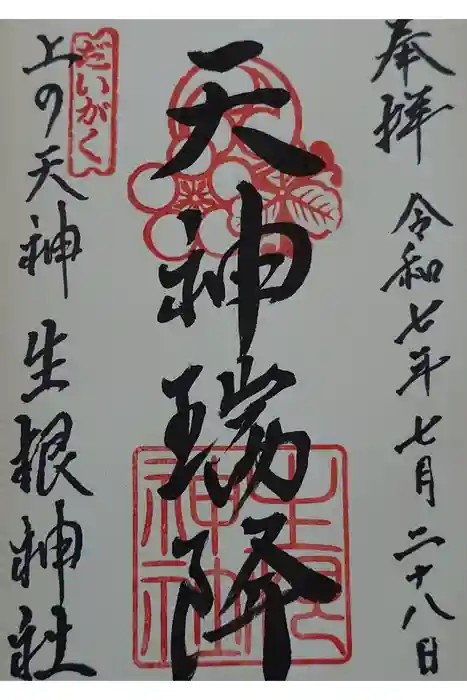 奉拝
令和七年七月二十八日
天神瑞降
だいがく
上の天神
生根神社
生根神社